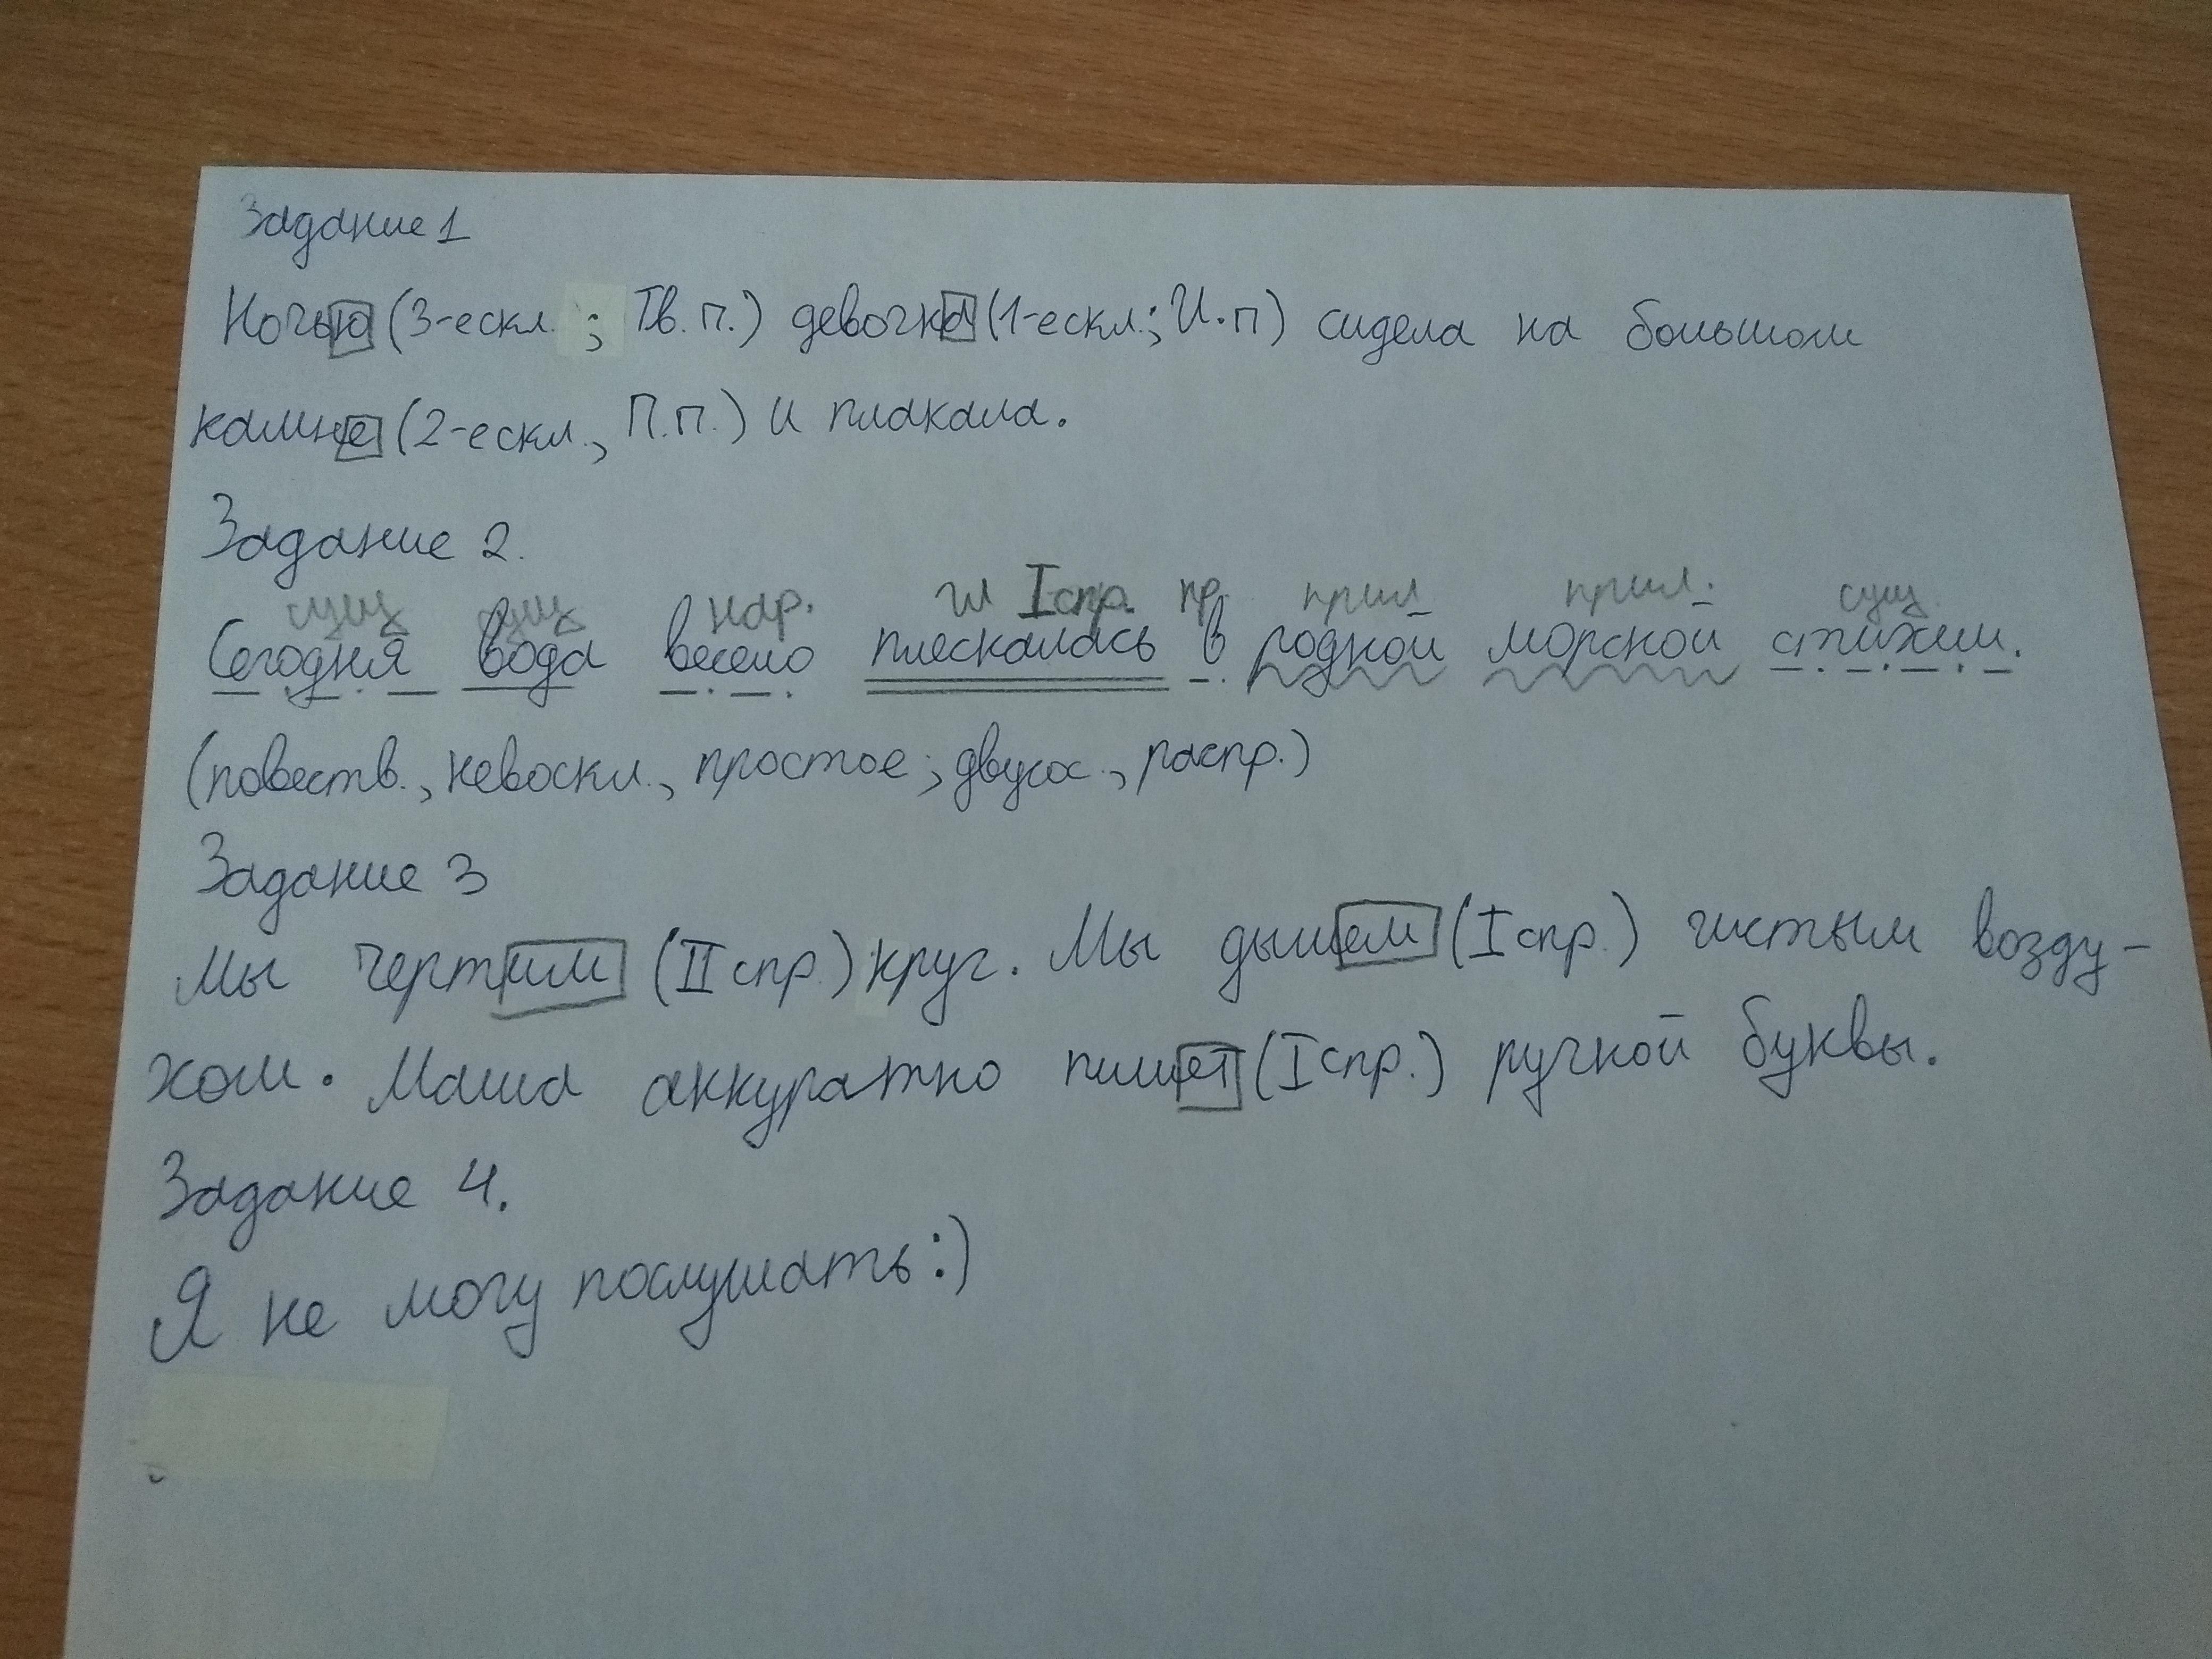 Задание 1
Ночью (3-е скл. ; Тв. п.) девочка (1-е скл.; И.п) сидела на большом
камне (2-е скл., П.п.) и плакала.
Задание 2.
сущ сущ нар. гл I спр. пр. прил прил. сущ
Сегодня вода весело плескалась в родной морской стихии.
(повеств., невоскл., простое, двусос., распр.)
Задание 3
Мы чертим (II спр.) круг. Мы дышем (I спр.) чистым возду-
хом. Маша аккуратно пишет (I спр.) ручкой буквы.
Задание 4.
Я не могу послушать:)